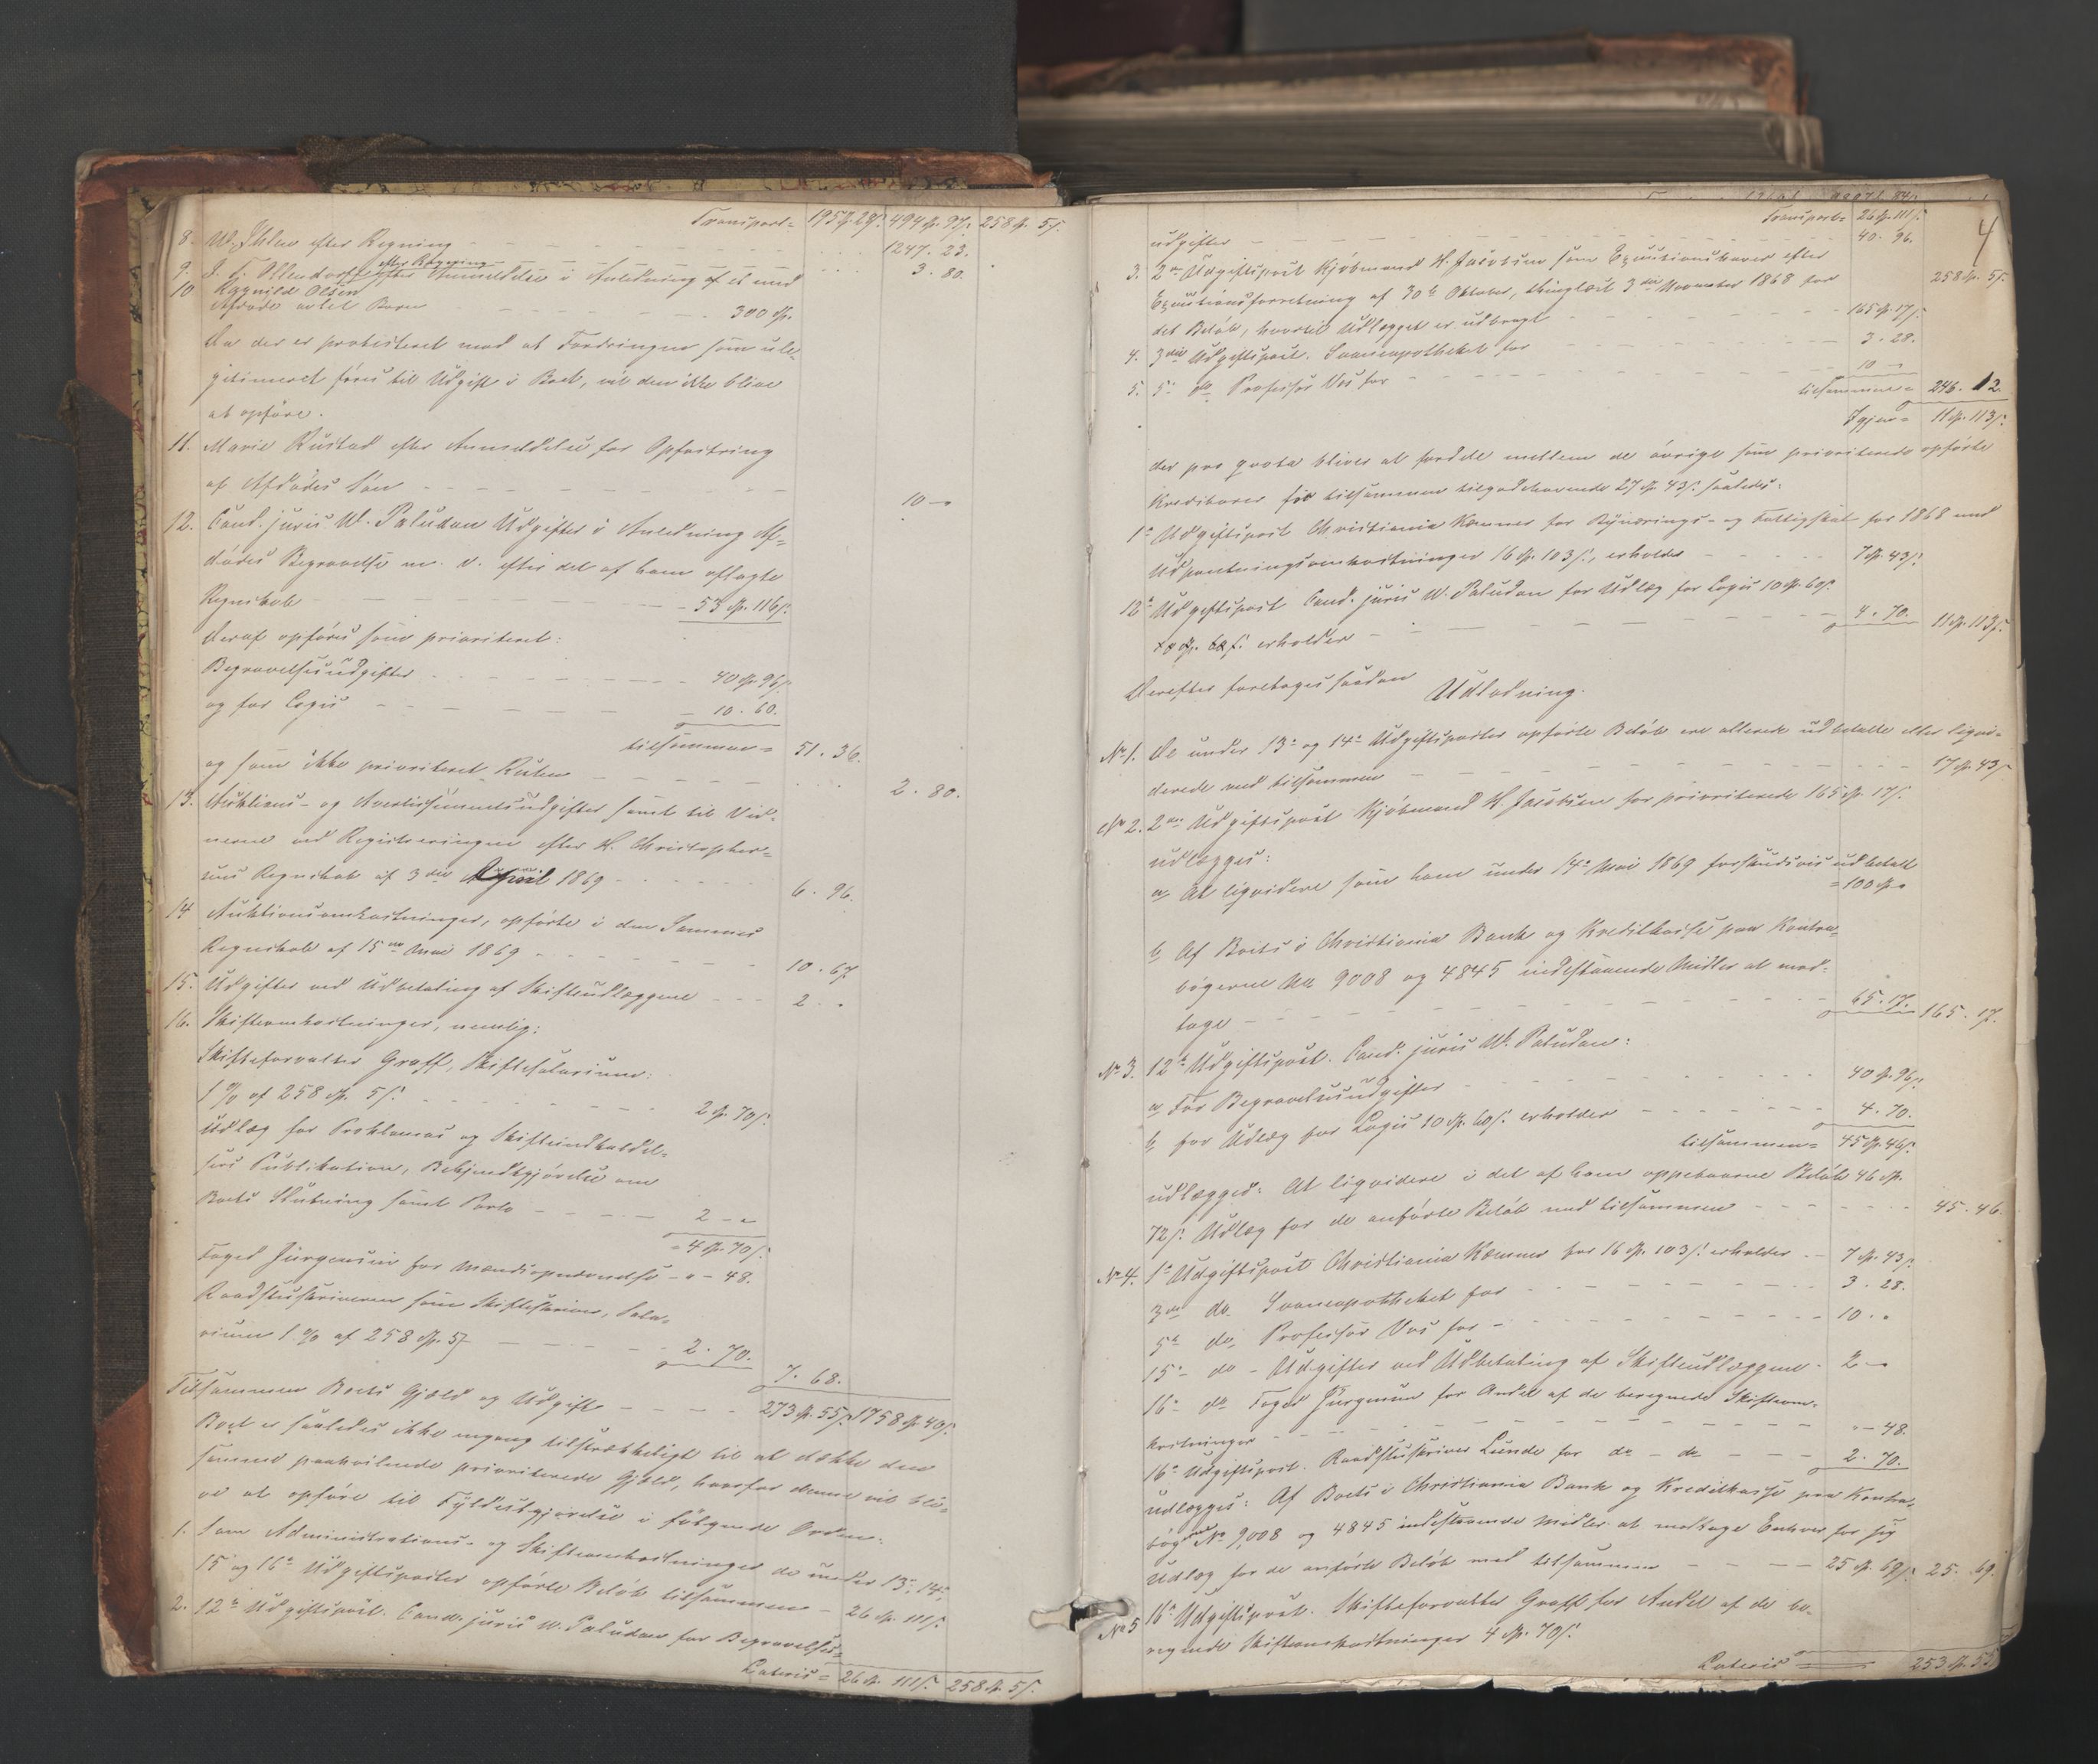 Transport = 195 Sp. 28 s. 494 Sp. 97 s. 258 Sp. 5 s.
8. W. Ihlen efter Regning 1247. 23.
9. J. F. Ollendorff efter Regning 3. 80.
10 Ragnild Olsen efter Anmeldelse i Anledning af et med
Afdøde avlet Barn 300 Sp.
Da der er protesteret mod at Fordringen som ule-
gitimeret føres til Udgift i Boet, vil den ikke blive
at opføre.
11. Marie Rustad efter Anmeldelse for Opfostring
af Afdødes Søn 10 -
12. Cand. juris W. Paludan Udgifter i Anledning Af-
dødes Begravelse m. v. efter det af ham aflagte
Regnskab 53 Sp. 116 s.
Deraf opføres som prioriteret:
Begravelsesudgifter 40 Sp. 96 s.
og for Logis 10. 60.
tilsammen = 51. 36.
og som ikke prioriteret Resten 2. 80.
13. Auktions- og Avertissementsudgifter samt til Vid-
nerne ved Registreringen efter H. Christopher-
sens Regnskab af 3die April 1869 6. 96.
14 Auktionsomkostninger, opførte i den Sammes
Regnskab af 15de Mai 1869 10. 67.
15. Udgifter ved Udbetaling af Skifteudlæggene 2. "
16. Skifteomkostninger, nemlig:
Skifteforvalter Graff, Skiftesalarium:
1 % af 258 Sp. 5 s. 2 Sp. 70 s.
Udlæg for Proklamas og Skifteindkaldel-
sers Publikation, Bekjendtgjørelse om
Boets Slutning samt Porto 2 - "
= 4 Sp. 70 s.
Foged Jürgensen for Mændsopnævnelse - " - 48.
Raadstueskriveren som Skifteskriver, Sala-
rium 1 % af 258 Sp. 5 s 2. 70.
7. 68.
Tilsammen Boets Gjæld og Udgift 273 Sp. 55 s. 1758 Sp. 40 s.
Boet er saaledes ikke engang tilstrækkeligt til at dække den
samme paahvilende prioriterede Gjæld, hvorfor denne vil bli-
ve at opføre til Fyldestgjørelse i følgende Orden:
1. Som Administrations- og Skifteomkostninger de under 13de, 14de,
15 og 16de Udgiftsposter opførte Beløb tilsammen - 26 Sp. 111 s.
2. 12te Udgiftspost. Cand. juris W. Paludan for Begravelses-
Lateris = 26 Sp. 111 s. 258 Sp. 5 s.
4
Transport = 26 Sp. 111 s. 258 Sp. 5 s.
udgifter 40. 96.
3. 2den Udgiftspost Kjøbmand H. Jacobsen som Exqutionshaver efter
Exqutionsforretning af 30te Oktober, thinglæst 3die November 1868 for
det Beløb, hvortil Udlægget er udbragt 165 Sp. 17 s.
4. 3die Udgiftspost. Svaneapotheket for 3. 28.
5. 5te do Professor Vos for 10 "
tilsammen = 246. 12.
Igjen = 11 Sp. 113 s.
der pro qvota bliver at fordele mellem de øvrige som prioriterede opførte
Kreditorer for tilsammen tilgodehavende 27 Sp. 43 s. saaledes:
1ste Udgiftspost Christiania Kæmner for Bynærings- og Fattigskat for 1868 med
Udpantningsomkostninger 16 Sp. 103 s., erholder 7 Sp. 43 s.
12te Udgiftspost Cand. juris W. Paludan for Udlæg for Logis 10 Sp. 60 s.
erholder 4. 70. 11 Sp. 113 s.
Derefter foretages saadan
Udlodning.
No 1. De under 13de og 14de Udgiftsposter opførte Beløb ere allerede udbetalte eller liqvi-
derede med tilsammen 17 Sp. 43 s
No 2. 2den Udgiftspost Kjøbmand H. Jacobsen for prioriterede 165 Sp. 17 s.
udlægges:
a, At liqvidere som ham under 14de Mai 1869 forskudsvis udbetalt
= 100 Sp. "
b, Af Boets i Christiania Bank og Kreditkasse paa Kontra-
bøgerne No 9008 og 4845 indestaaende Midler at mod-
tage 65. 17. 165. 17.
No 3. 12te Udgiftspost. Cand. juris W. Paludan:
a, For Begravelsesudgifter 40 Sp. 96 s.
b, for Udlæg for Logis 10 Sp. 60 s. erholder 4. 70.
tilsammen = 45 Sp. 46 s.
udlægges: At liqvidere i det af ham oppebaarne Beløb 46 Sp.
72 s. Udlæg for de anførte Beløb med tilsammen 45. 46.
No 4. 1ste Udgiftspost Christiania Kæmner for 16 Sp. 103 s. erholder 7 Sp. 43 s.
3die do. Svaneapotheket for 3. 28.
5te do, Professor Vos for 10. "
15de do - Udgifter ved Udbetaling af Skifteudlæggene - 2 - "
16de do Foged Jürgensen for Andel af de beregnede Skifteom-
kostninger " - 48.
16de Udgiftspost. Raadstueskriver Lunde for do - do 2. 70.
udlægges: Af Boets i Christiania Bank og Kreditkasse paa Kontra-
bøgerne No 9008 og 4845 indestaaende Midler at modtage Enhver for sig
Udlæg for de anførte Beløb med tilsammen 25 Sp. 69 s. 25. 69.
No 5 16de Udgiftspost. Skifteforvalter Graff for Andel af de be-
regnede Skifteomkostninger 4 Sp. 70 s.
Lateris 253 Sp. 55